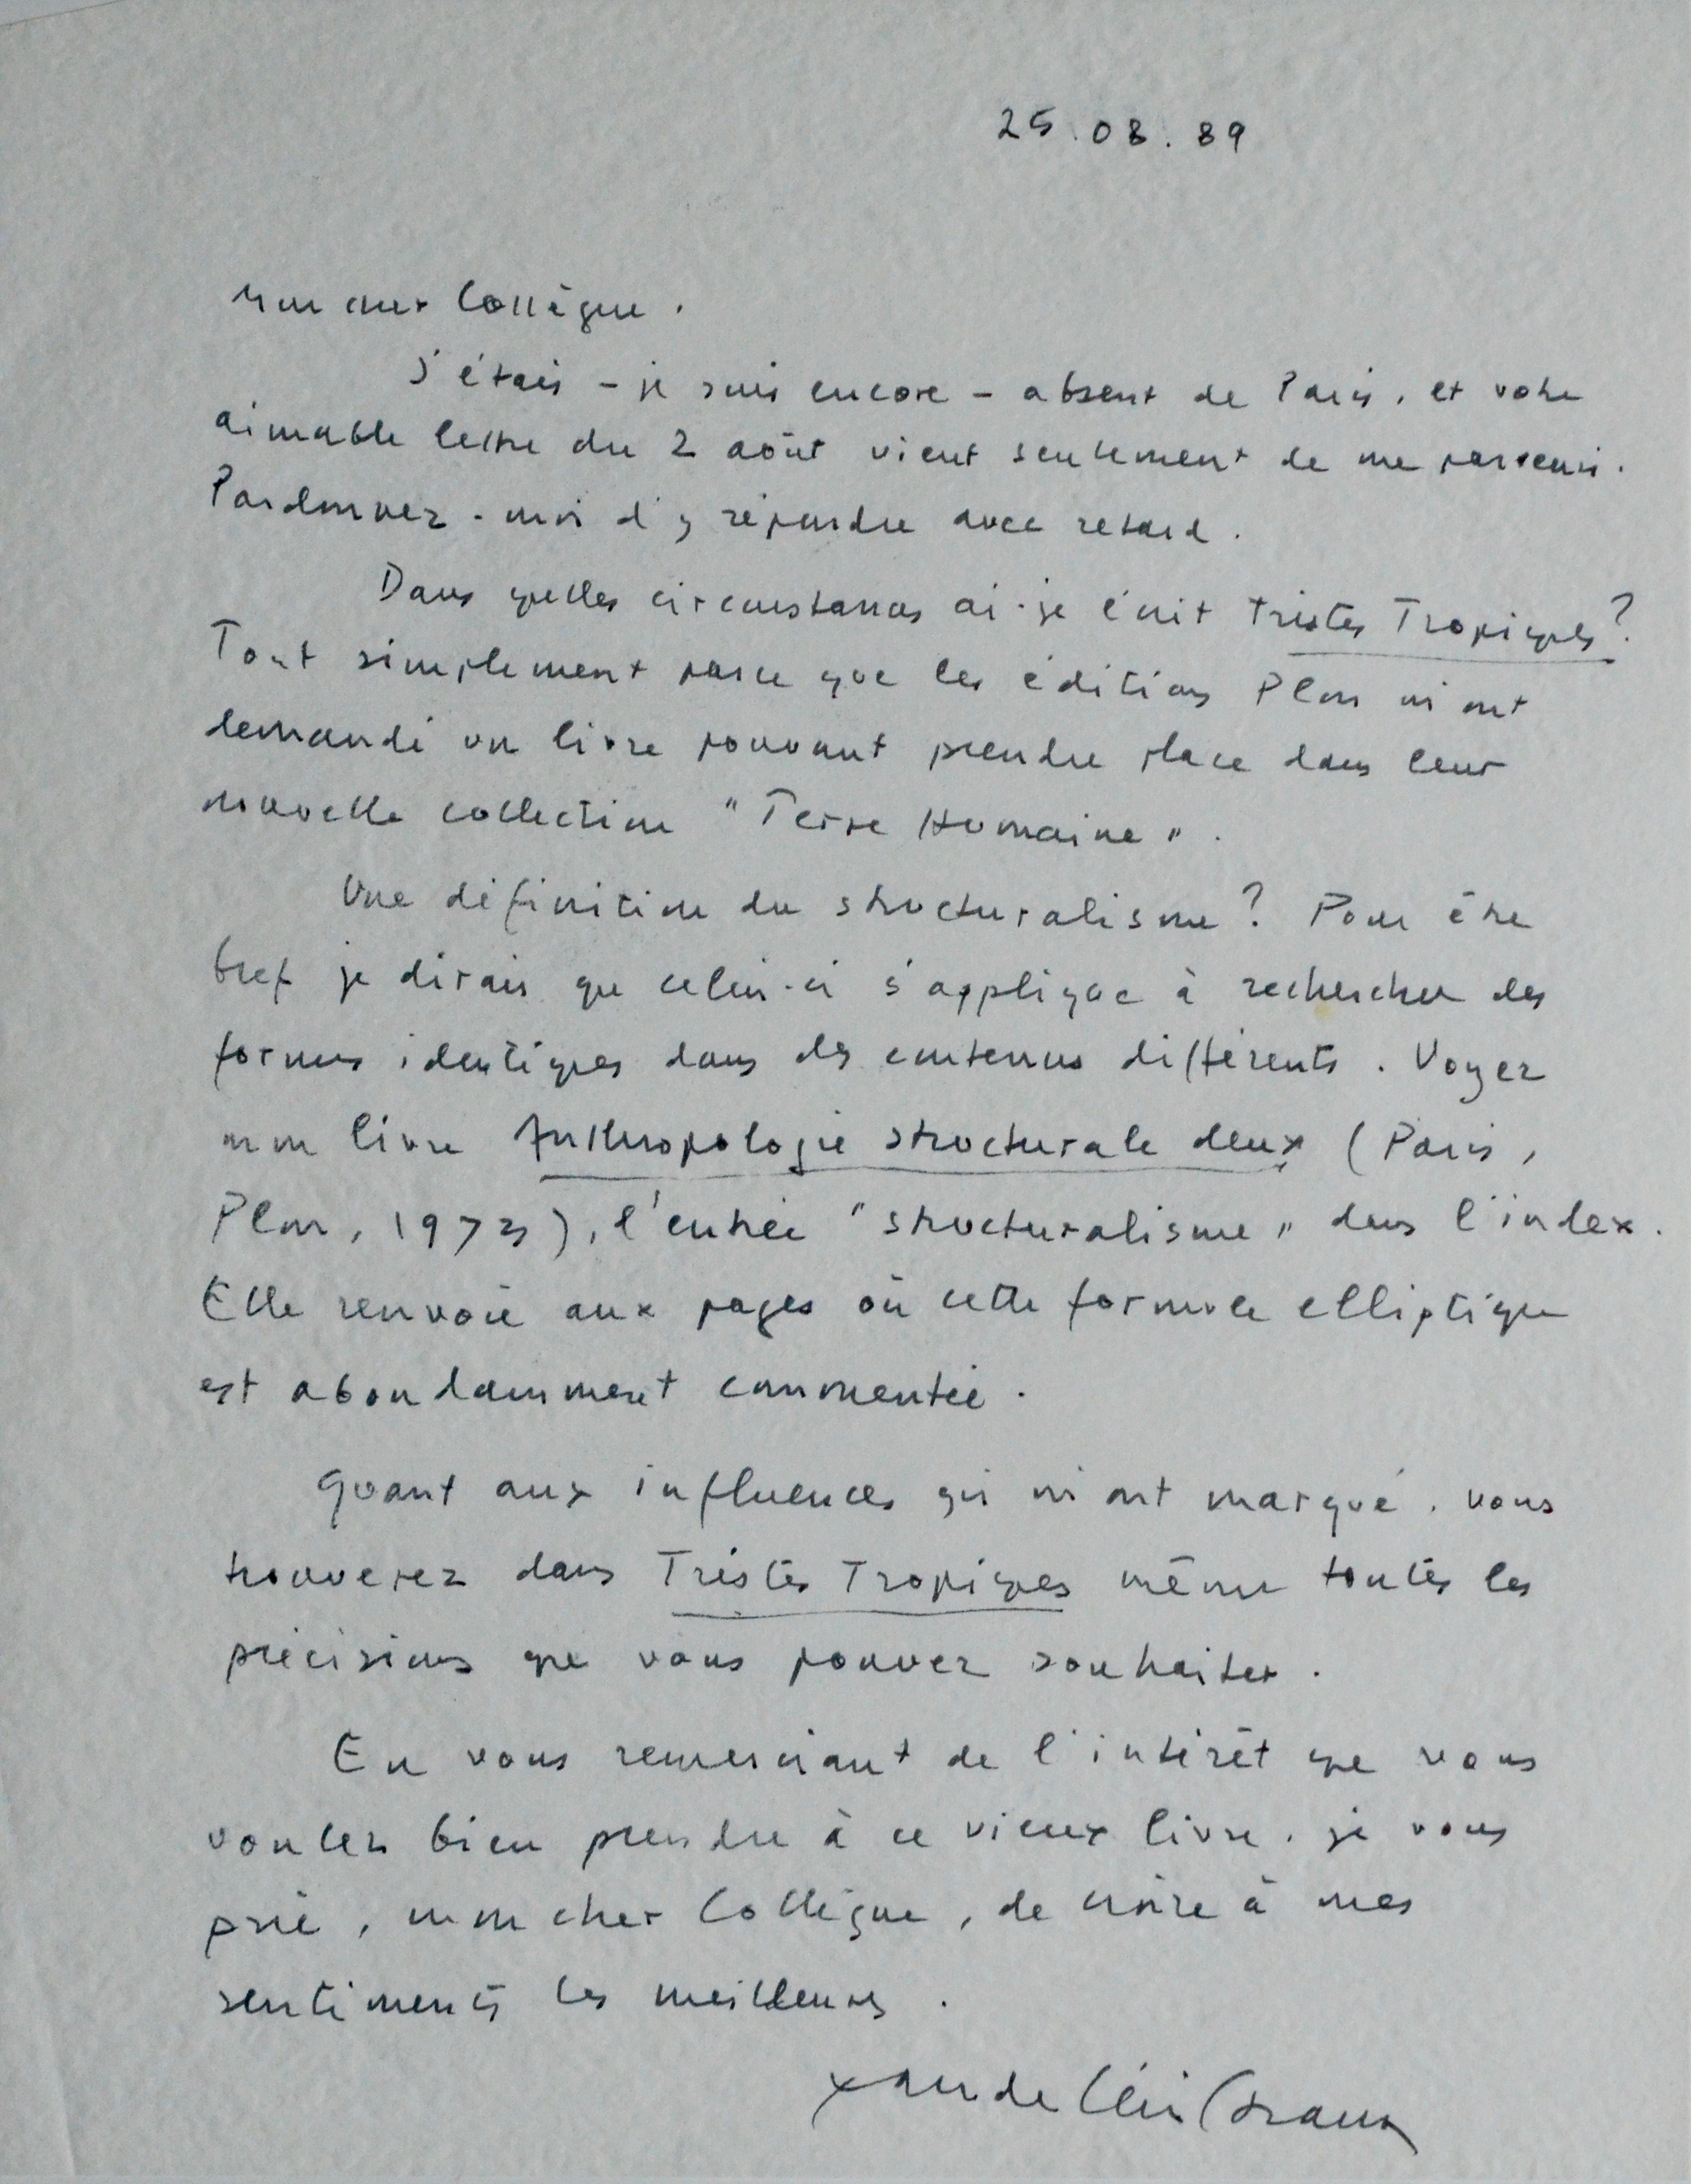 25.08.89
Mon cher Collègue,
J'étais – je suis encore – absent de Paris, et votre
aimable lettre du 2 août vient seulement de me parvenir.
Pardonnez-moi d'y répondre avec retard.
Dans quelles circonstances ai-je écrit Tristes Tropiques?
Tout simplement parce que les éditions Plon m'ont
demandé un livre pouvant prendre place dans leur
nouvelle collection "Terre Humaine".
Une définition du structuralisme? Pour être
bref je dirais que celui-ci s'applique à rechercher des
formes identiques dans des contenus différents. Voyez
mon livre Anthropologie structurale deux (Paris,
Plon, 1973), l'entrée "structuralisme" dans l'index.
Elle renvoie aux pages où cette formule elliptique
est abondamment commentée.
Quant aux influences qui m'ont marqué, vous
trouverez dans Tristes Tropiques même toutes les
précisions que vous pouvez souhaiter.
En vous remerciant de l'intérêt que vous
voulez bien prendre à ce vieux livre, je vous
prie, mon cher Collègue, de croire à mes
sentiments les meilleurs.
Claude Lévi-Strauss